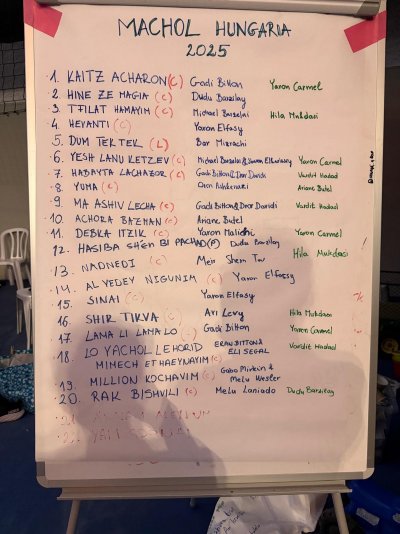 MACHOL HUNGARIA
2025
1. KAITZ ACHARON (C) Gadi Bitton Yaron Carmel
2. HINE ZE MAGIA (C) Dudu Barzilay
3. TFILAT HAMAYIM (C) Michael Barzelai Hila Mukdasi
4. HEVANTI (C) Yaron Elfasy
5. DUM TEK TEK (L) Bar Mizrachi
6. YESH LANU KETZEV (C) Michael Barzelai & Yaron Carmel
7. HADAYTA LACHAZOR (C) Gadi Bitton & Dror Davidi Vardit Hadad
8. YUMA (C) Oren Ashkenazi Ariane Butel
9. MA ASHIV LECHA (C) Gadi Bitton & Dror Davidi Vardit Hadad
10. ACHORA BAZMAN (C) Ariane Butel
11. DEBKA ITZIK (C) Yaron Malichi Yaron Carmel
12. HASIBA SH'EN BI PACHAD (P) Dudu Barzilay
13. NADNEDI (C) Meir Shem Tov Hila Mukdasi
14. AL YEDEY NIGUNIM (C) Yaron Elfasy
15. SINAI (C) Yaron Elfasy
16. SHIR TIKVA (C) Avi Levy Hila Mukdasi
17. LAMA LI LAMA LO (C) Gadi Bitton Yaron Carmel
18. LO YACHOL LEHORID ERAN BITTON & Vardit Hadad
MIMECH ET HAEYNAYIM (C) ELI SEGAL
19. MILLION KOCHAVIM (C) Gabo Mirkin & Melu Wesler
20. RAK BISHVILI (C) Melu Laniado Dudu Barzilay